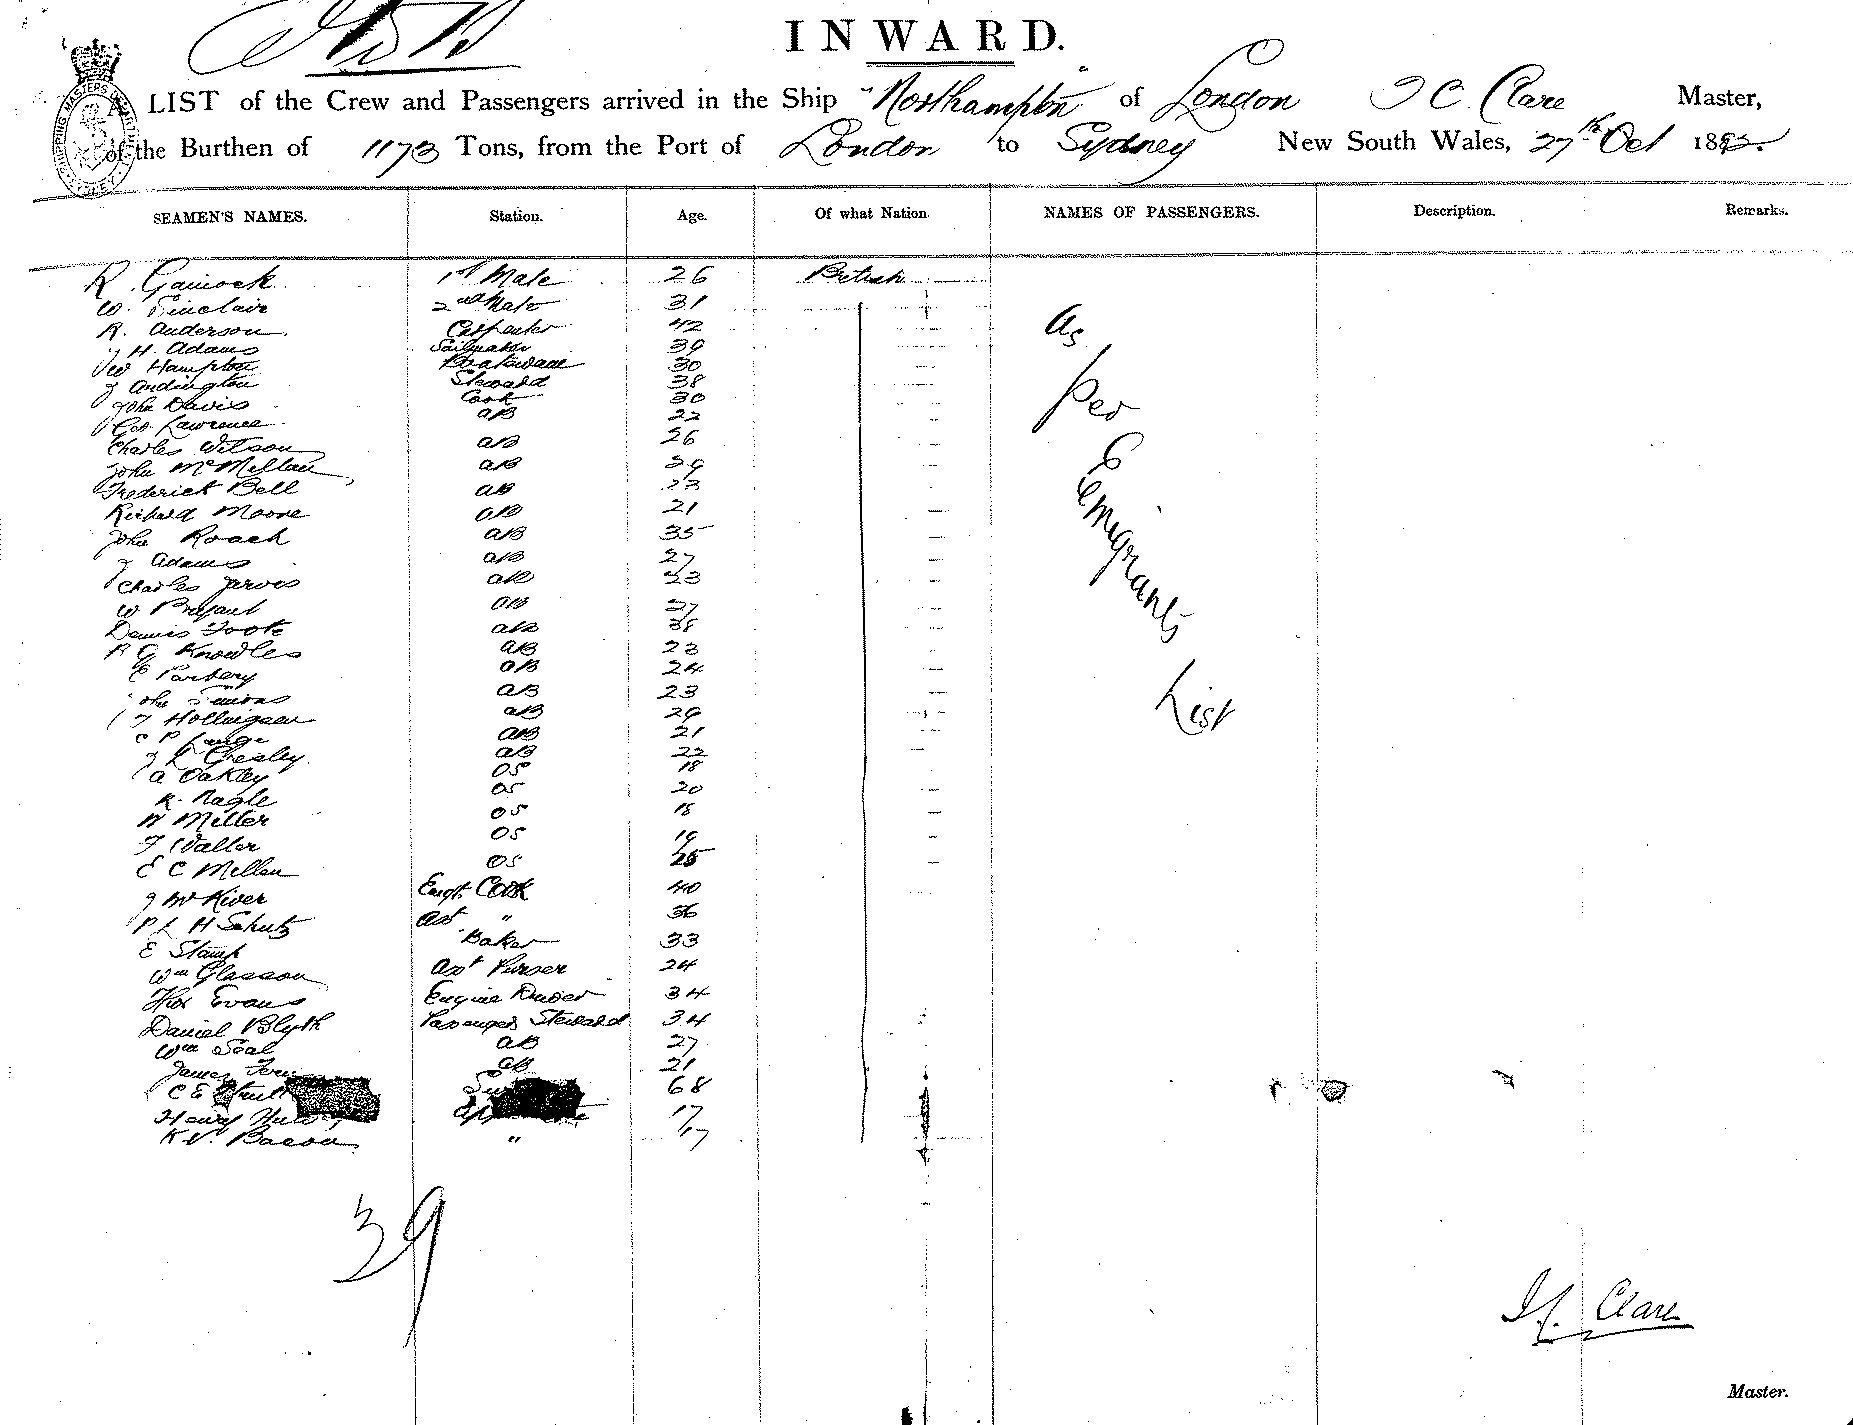 INWARD.
A LIST of the Crew and Passengers arrived in the Ship "Northampton" of London J C Clare Master,
of the Burthen of 1173 Tons, from the Port of London to Sydney New South Wales, 27th Oct 1882.
SEAMEN'S NAMES. Station. Age. Of what Nation. NAMES OF PASSENGERS. Description. Remarks.
R. 1st Mate 26 British
W. Sinclair 2nd Mate 31
R. Anderson Carpenter 42
J H. Adams Sailmaker 39
W Hampton 30
Steward 38
John Davis Cook 30
Geo Lawrence AB 22
Charles Wilson AB 26
John McMillan AB 29
Frederick Bell AB 23
Richard Moore AB 21
John Roach AB 35
J Adams AB 27
Charles Jarvis AB 23
W AB 27
Dennis Foote AB 38
R G Knowles AB 23
E Parbery AB 24
AB 23
AB 29
C P Lange AB 21
AB 22
A Oakley OS 18
R. Nagle OS 20
W Miller OS 18
F Waller OS 19
E C Mellen OS 25
J McKiver Emgt. Cook 40
P L H Schutz Ast " 36
E Stamp Baker 33
Wm Glasson Asst Purser 24
Thos Evans Engine Driver 34
Daniel Blyth Passenger Steward 34
Wm Seal AB 27
James AB 21
C E 68
Henry 17
K V. Bacon " 17
As
per
Emigrants
List
39
J C. Clare
Master.